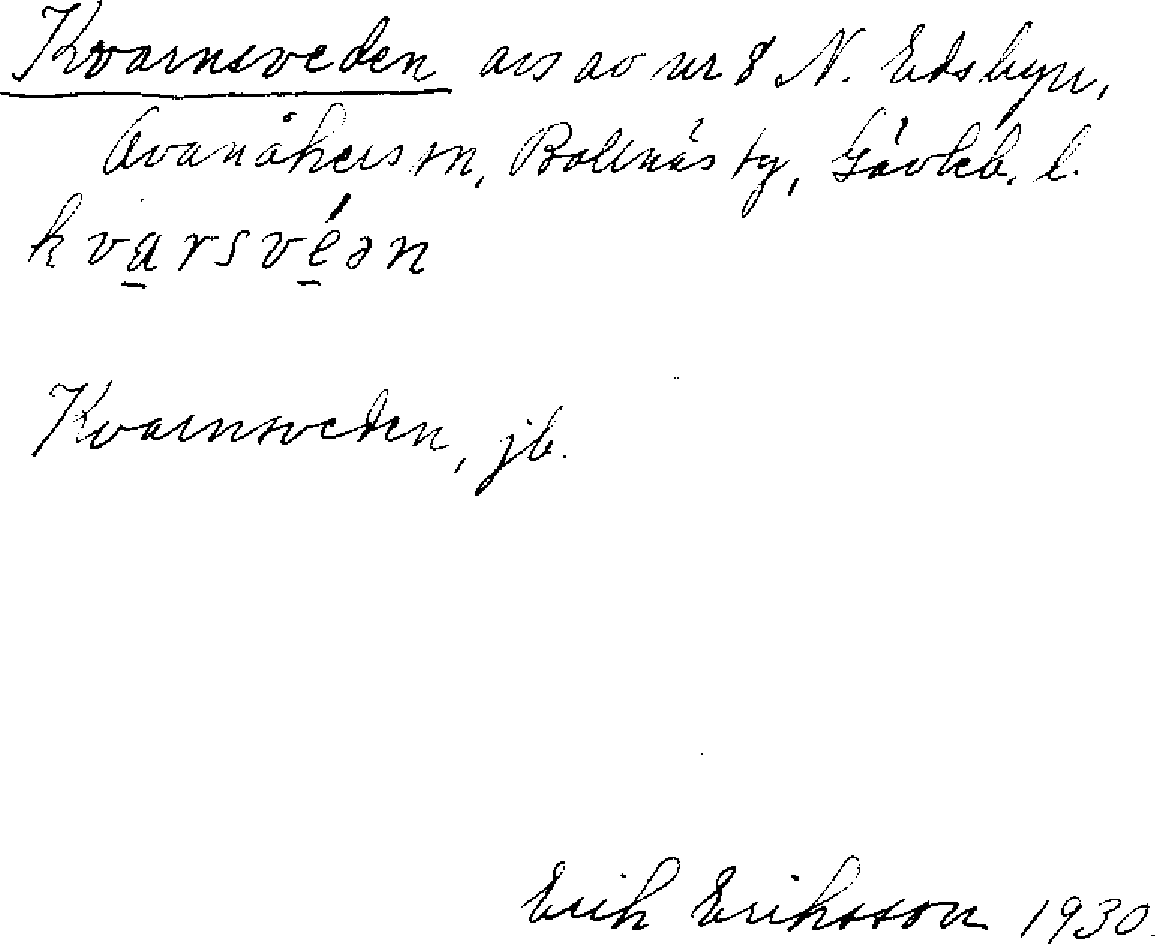 Kvarnsveden avs av nr 8 N. Edsbyn,
Ovanåkers sn, Bollnäs tg, Gävleb. l.
kvarsvéən
Kvarnsveden, jb.
Erik Eriksson 1930.